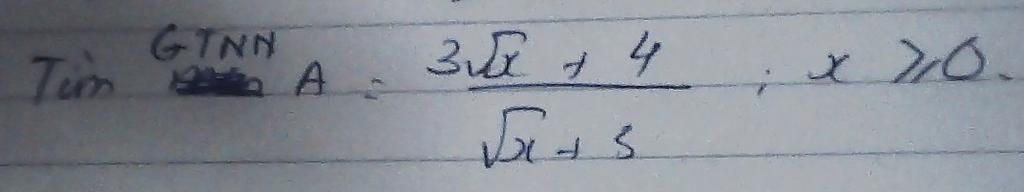 Tìm GTNN A = \frac{3\sqrt{x} + 4}{\sqrt{x} + 3} ; x ≥ 0.